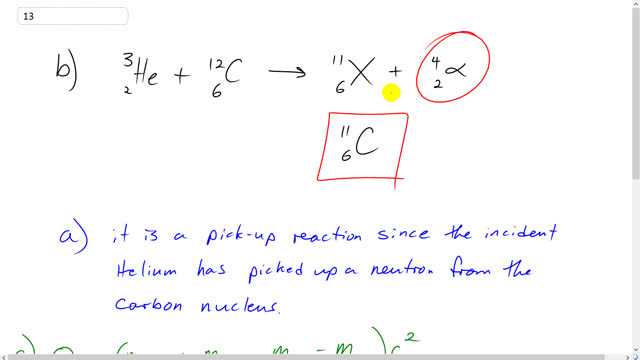 13
b) ³₂He + ¹²₆C → ¹¹₆X + ⁴₂α
¹¹₆C
a) it is a pick-up reaction since the incident
Helium has picked up a neutron from the
Carbon nucleus.
m - m )c²